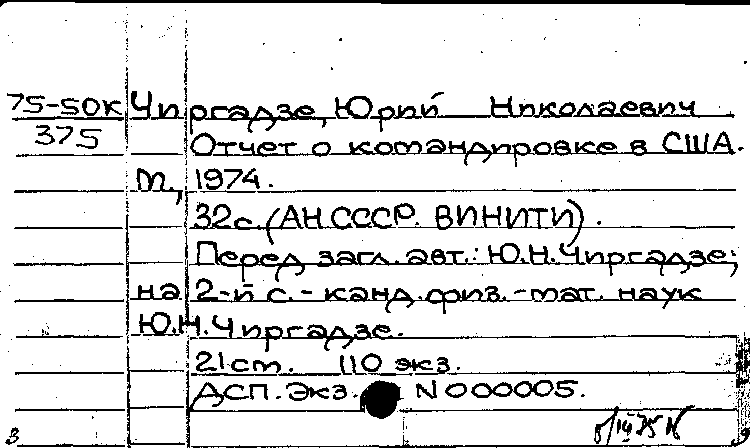 75-50к Чиргадзе, Юрий Николаевич
375 Отчет о командировке в США.
м., 1974.
32с. (АН СССР. ВИНИТИ).
Перед загл. авт.: Ю.Н.Чиргадзе;
на 2-й с. - канд. физ.-мат. наук
Ю.Н.Чиргадзе.
21 см. 110 экз.
ДСП. Экз. N 000005.